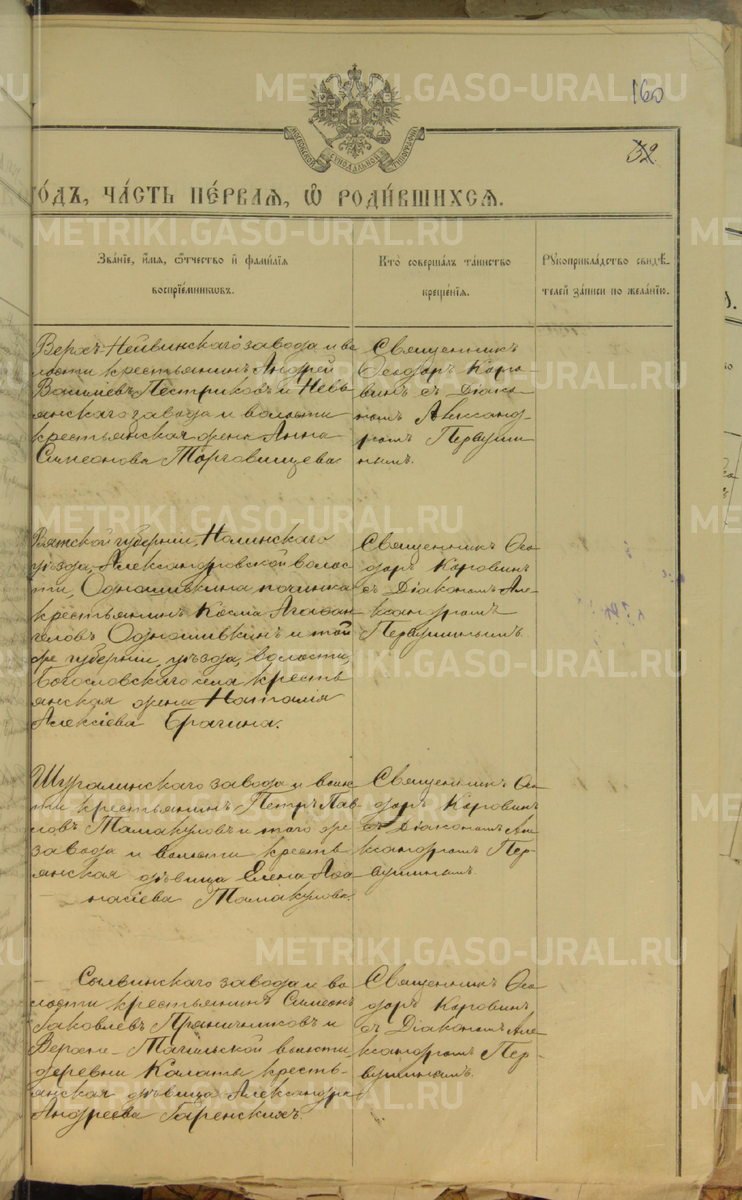 160
32
МОСКОВСКОЙ СѴНОДАЛЬНОЙ ТИПОГРАФІИ
ГО́ДЪ, ЧА́СТЬ ПЕ́РВАЯ, Ѡ҆ РОДИ́ВШИХСЯ.
Зва́нїе, и҆́мя, ѻ҆́тчество и҆ фами́лїя
воспрїе́мникѡвъ.
Кто̀ соверша́лъ та́инство
креще́нїя.
Рꙋкоприкла́дство свидѣ́-
телей за́писи по жела́нїю.
Верхъ-Нейвинскаго завода и во
лости крестьянинъ Андрей
Васильевъ Пестриковъ и Невь
янскаго завода и волости
крестьянская жена Анна
Симеонова Торговищева
Священникъ
Ѳеодоръ Коро-
винъ съ Діако-
номъ Александ-
ромъ Первуши
нымъ.
Вятской губерніи, Нолинскаго
уѣзда, Александровской волос
ти, Одношивкина починка
крестьянинъ Косма Агаѳан
геловъ Одношивкинъ и той
же губерніи, уѣзда, волости,
Богословскаго села кресть
янская жена Наталія
Алексіева Брагина.
Священникъ Ѳео
доръ Коровинъ
съ Діакономъ Але
ксандромъ
Первушинымъ.
Шуралинскаго завода и волос
ти крестьянинъ Петръ Пав
ловъ Тамакуловъ и того же
завода и волости кресть
янская дѣвица Елена Аѳа
насіева Тамакулова
Священникъ Ѳео
доръ Коровинъ
съ Діакономъ Але
ксандромъ Пер-
вушинымъ.
Сылвинскаго завода и во
лости крестьянинъ Симеонъ
Іаковлевъ Пряничниковъ и
Верхне-Тагильской волости
деревни Калаты кресть-
янская дѣвица Александра
Андреева Гаренскихъ.
Священникъ Ѳео
доръ Коровинъ
съ Діакономъ Але
ксандромъ Пер-
вушинымъ.
METRIKI.GASO-URAL.RU
METRIKI.GASO-URAL.RU
METRIKI.GASO-URAL.RU
METRIKI.GASO-URAL.RU
METRIKI.GASO-URAL.RU
METRIKI.GASO-URAL.RU
METRIKI.GASO-URAL.RU
METRIKI.GASO-URAL.RU